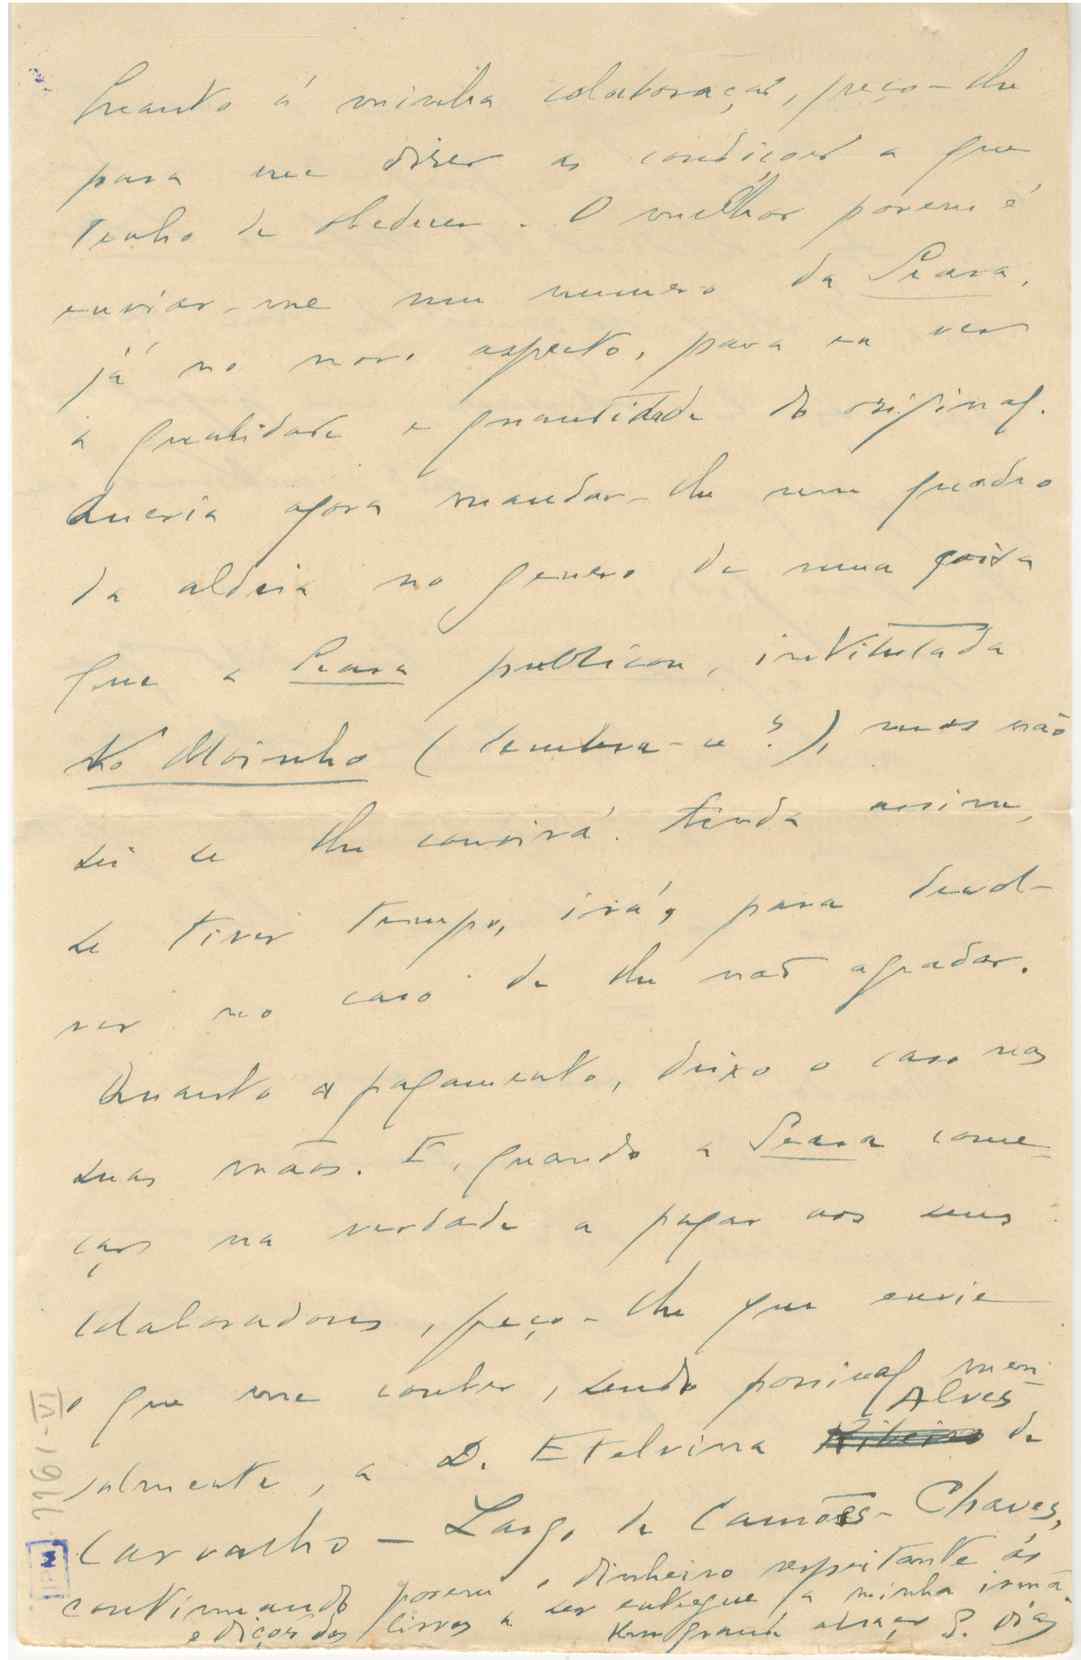 Quanto á minha colaboração, peço-lhe
para me diser as condições a que
tenho de obedecer. O melhor porem é
enviar-me um numero da Seara,
já no novo aspecto, para eu ver
a qualidade e quantidade do original.
Queria agora mandar-lhe um quadro
da aldeia no genero de uma coisa
que a Seara publicou, intitulada
No Moinho (lembra-se?), mas não
sei se lhe convirá. Ainda assim,
se tiver tempo, irá, para devol-
ver no caso de lhe não agradar.
Quanto a pagamento, deixo o caso nas
suas mãos. E, quando a Seara come-
çar na verdade a pagar aos seus
colaboradores, peço-lhe que envie
o que me couber, sendo possivel men-
salmente, a D. Etelvina Ribeiro Alves de
Carvalho - Largo de Camões - Chaves,
continuando porem o dinheiro respeitante ás
edições dos livros a ser entregue a minha irmã.
Um grande abraço S. Dias
1167-VI